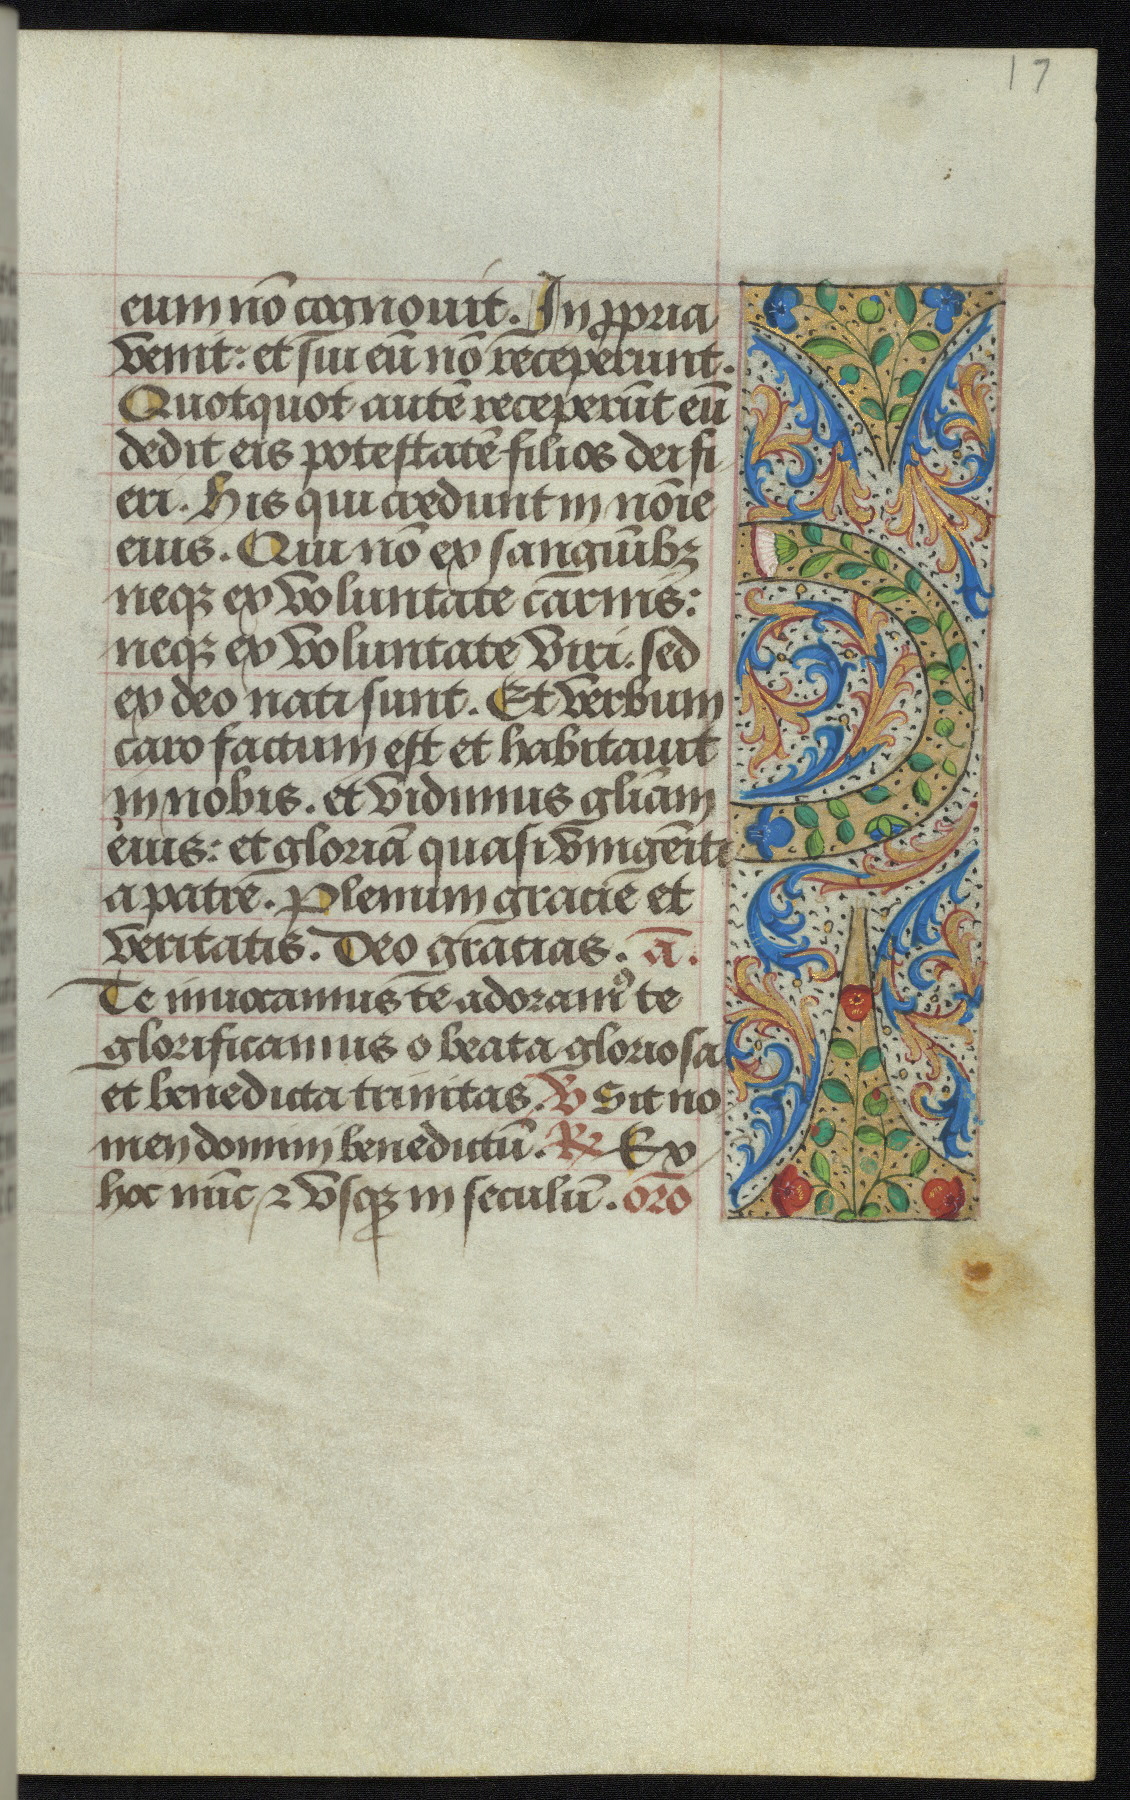 17
eum nō cognouit. In ꝓpria
venit: et sui eū nō receperunt.
Quotquot autē receperūt eū
dedit eis potestatē filios dei fi
eri. His qui credunt in nōie
eius. Qui nō ex sanguībꝫ
neqꝫ ex voluntate carnis:
neqꝫ ex voluntate viri. sed
ex deo nati sunt. Et verbum
caro factum est et habitauit
in nobis. et vidimus gliām
eius: et gloriā quasi vnigēiti
a patre. Plenum gracie et
veritatis. Deo gratias. ā.
Te inuocamus te adoramꝰ te
glorificamus o beata gloriosa
et benedicta trinitas. ℣ Sit no
men domini benedictū. ℟ Ex
hoc nūc ⁊ vsqꝫ in seculū. oro